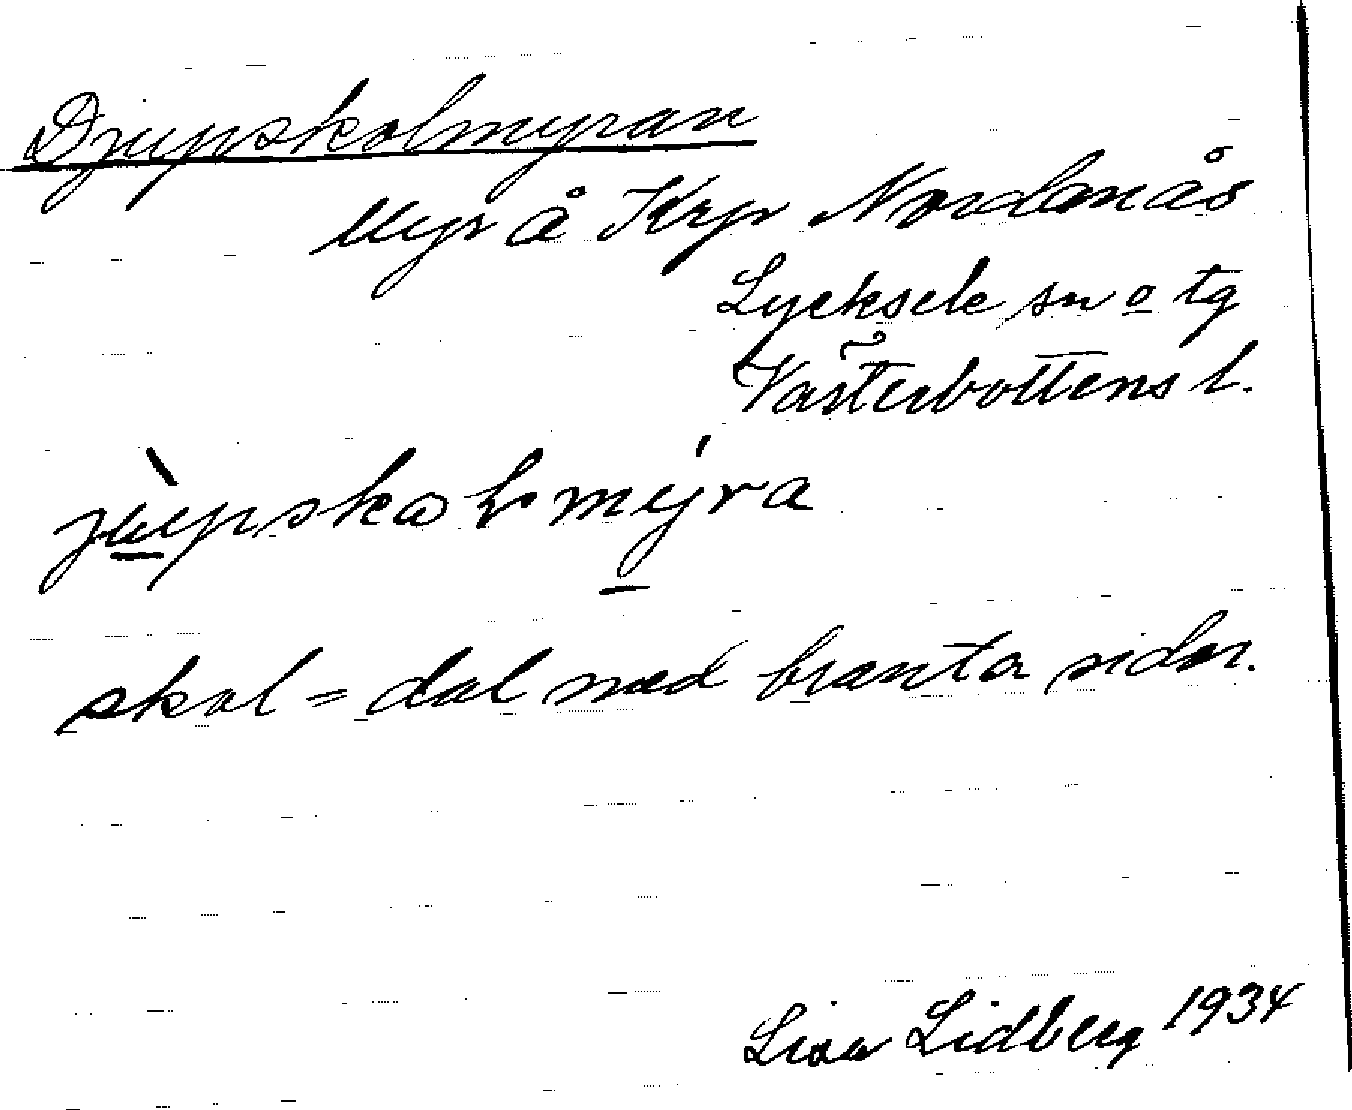 Djupskolmyran
Myr å Krp Nordanås
Lycksele sn o tg
Västerbottens l.
skol = dal med branta sidor.
Lisa Lidberg 1934